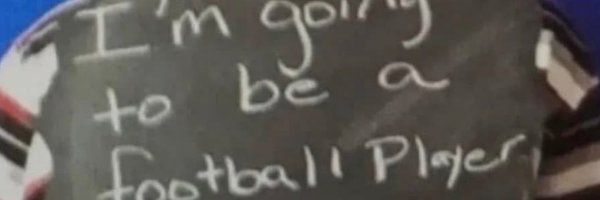 I'm going
to be a
football Player